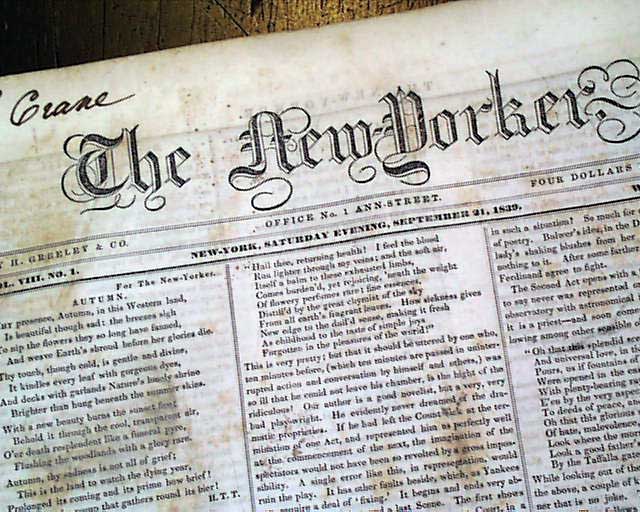 Crane
The New-Yorker.
OFFICE No. 1 ANN-STREET.
FOUR DOLLARS
H. GREELEY & CO.
NEW-YORK, SATURDAY EVENING, SEPTEMBER 21, 1839.
VOL. VIII. NO. 1.
For The New-Yorker.
AUTUMN.
presence, Autumn, in this Western land,
Is beautiful though sad: the breezes sigh
To nip the flowers they so long have fanned,
And weave Earth's shroud before her glories die.
Thy touch, though cold, is gentle and divine,
It kindles every leaf with gorgeous dyes,
And decks with garlands Nature's lonely shrine
Brighter than hung beneath the summer skies.
With a new beauty burns the sunset
Behold it through the cool, transparent air,
O'er death resplendent like a funeral pyre,
Flushing the woodlands with a glory rare.
Autumn, thy sadness is not all of grief;
This is the land to watch the dying year,
Prolonged its coming and its prime how brief!
up that gathers round its bier!
H. T. T.
"Hail thee, returning health! I feel the blood
Run lighter through my veins; and the soft air,
Itself a balm to these exhausted limbs,
Comes burden'd, yet rejoicing, 'neath the weight
Of flowery perfumes and fine
Distill'd by the great chymist of the sky
From all earth's fragrant How sickness gives
New edge to the dull'd sense, making it fresh
As childhood in the taste of simple joys
Forgotten in the pleasures of the world!"
This is very pretty; but that it should be uttered by one who,
ten minutes before, (which ten minutes are passed in uninter-
rupted action and conversation by himself and others,) was
so ill that he could not leave his chamber, is the high of the
ridiculous! Our author is a good novelist, but a very, very
bad playwright. He evidently never dreamed of the dra-
matic properties. If he had left the Count sick at the ter-
mination of one Act, and represented him as perfectly well
at the commencement of the next, the imagination of the
spectators would not have been so revolted by a gross impos-
sibility. A single error like this, in representation, would
ruin the play. It has other faults beside, which, as Yankees
require a deal of 'fixing.' It begins and ends very ab-
and a last Scene. The first shows
in such a situation? So much for
of poetry. Bulwer's idea, in the D
lady's shaking blushes from her
nothing to it. After some farther
Ferdinand agree to fight.
The Second Act opens with a
to say never was represented
observatory with astronomical
it is a priest—and soon
lowing among other sensible
"Oh that splendid
And universal love, in
Pours, us if fountains
Were opened in the
With
E'en by the very
To deeds of peace,
Oh that the
Of hate, malevolence
Look where the
Look a good
By the Taffalla gate
While looking out of the
the above, a couple of
ner that is no joke.